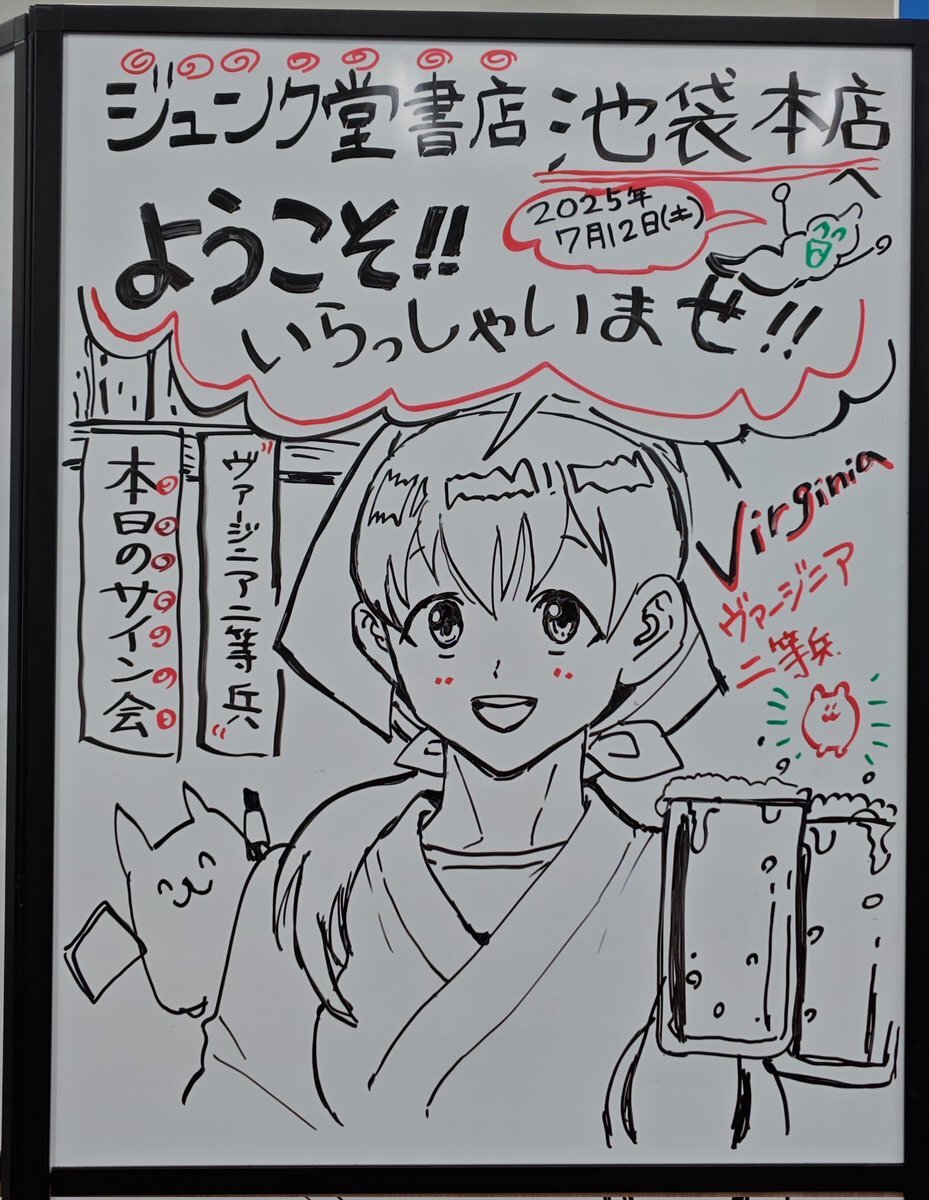 ジュンク堂書店 池袋本店
へ
ようこそ!!
2025年
7月12日(土)
いらっしゃいませ!!
本日のサイン会
ヴァージニア二等兵
Virginia
ヴァージニア
二等兵